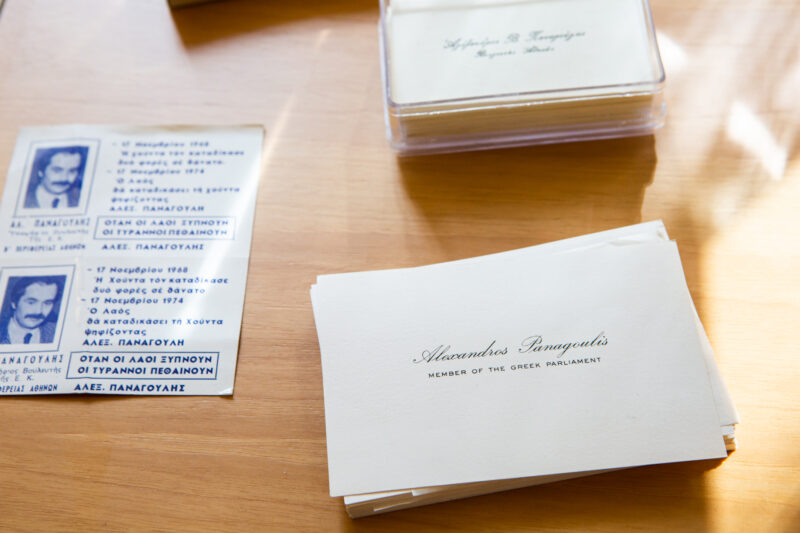 17 Νοεμβρίου 1968
Ἡ χούντα τὸν καταδίκασε
δυὸ φορές σὲ θάνατο.
- 17 Νοεμβρίου 1974
Ὁ Λαός
θὰ καταδικάσει τὴ χούντα
ψηφίζοντας
ΑΛΕΞ. ΠΑΝΑΓΟΥΛΗ
ΟΤΑΝ ΟΙ ΛΑΟΙ ΞΥΠΝΟΥΝ
ΟΙ ΤΥΡΑΝΝΟΙ ΠΕΘΑΙΝΟΥΝ
ΑΛΕΞ. ΠΑΝΑΓΟΥΛΗΣ
ΑΛ. ΠΑΝΑΓΟΥΛΗΣ
τῆς Ε. Κ.
Β' ΠΕΡΙΦΕΡΕΙΑΣ ΑΘΗΝΩΝ
- 17 Νοεμβρίου 1968
Ἡ Χούντα τὸν καταδίκασε
δυὸ φορές σὲ θάνατο
- 17 Νοεμβρίου 1974
Ὁ Λαός
θὰ καταδικάσει τὴ Χούντα
ψηφίζοντας
ΑΛΕΞ. ΠΑΝΑΓΟΥΛΗ
ΟΤΑΝ ΟΙ ΛΑΟΙ ΞΥΠΝΟΥΝ
ΟΙ ΤΥΡΑΝΝΟΙ ΠΕΘΑΙΝΟΥΝ
ΑΛΕΞ. ΠΑΝΑΓΟΥΛΗΣ
ΠΑΝΑΓΟΥΛΗΣ
Βουλευτής
τῆς Ε. Κ.
ΑΘΗΝΩΝ
Ἀλέξανδρος Β. Παναγούλης
Βουλευτής Ἀθηνῶν
Alexandros Panagoulis
MEMBER OF THE GREEK PARLIAMENT